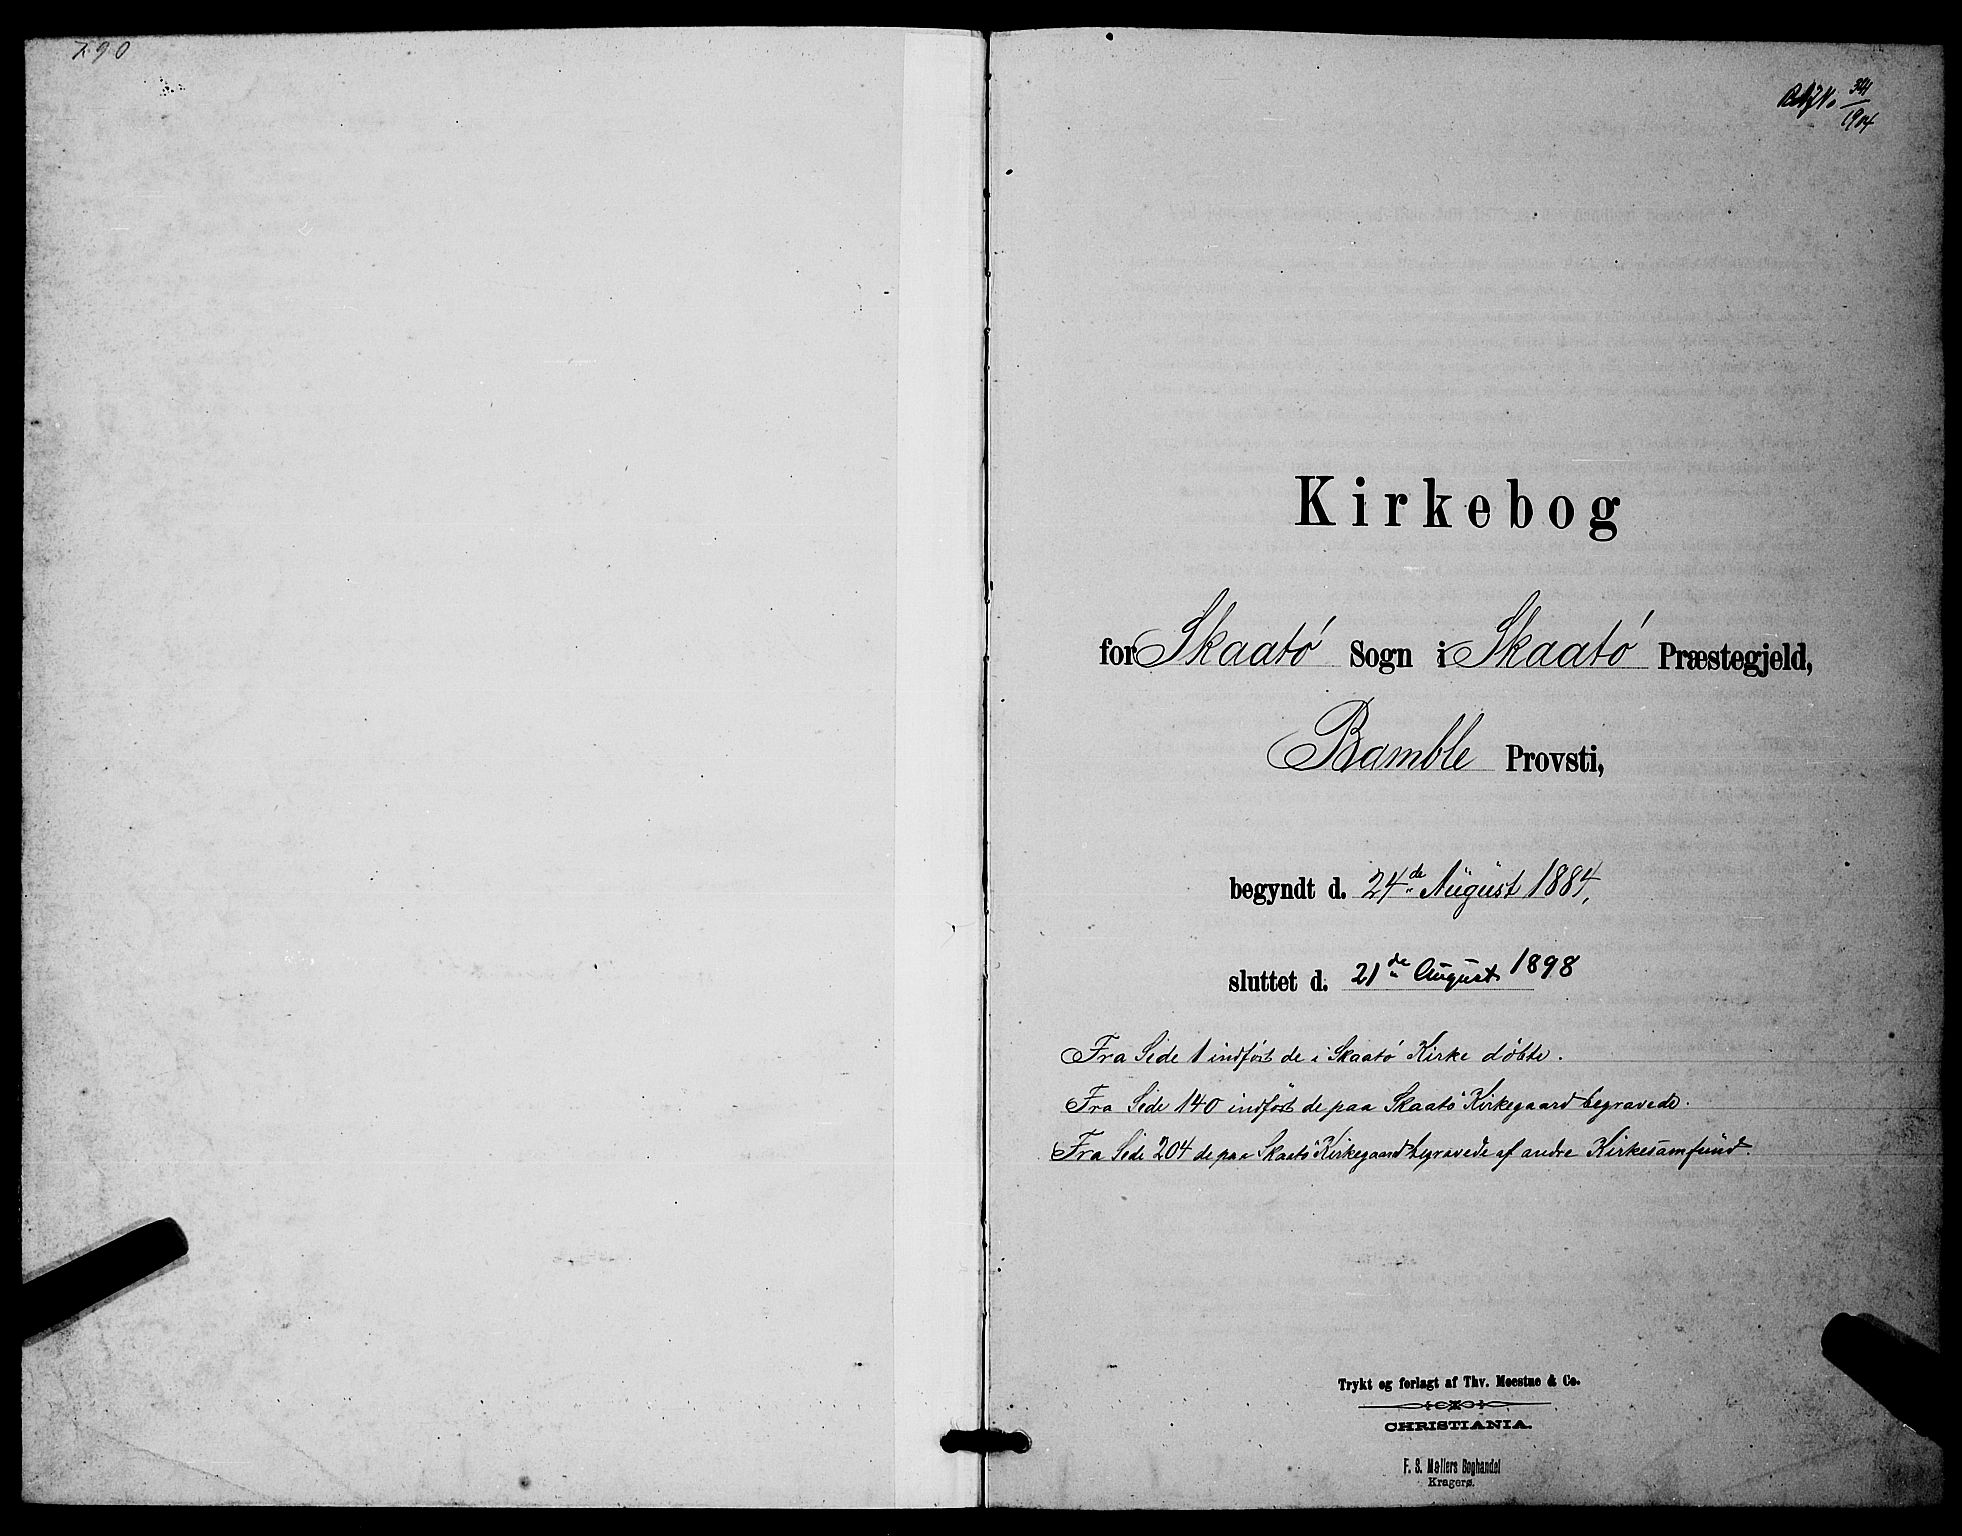 290
34
1904
Kirkebog
for Skaatö Sogn i Skaatö Præstegjeld,
Bamble Provsti,
begyndt d. 24de August 1884,
sluttet d. 21de August 1898
Fra Side 1 indført de i Skaatö Kirke döbte.
Fra Side 140 indført de paa Skaatö Kirkegaard begravede.
Fra Side 204 de paa Skaatö Kirkegaard begravede af andre Kirkesamfund.
Trykt og forlagt af Thv. Moestue & Co.
CHRISTIANIA.
F. S. Møllers Boghandel
Kragerø.